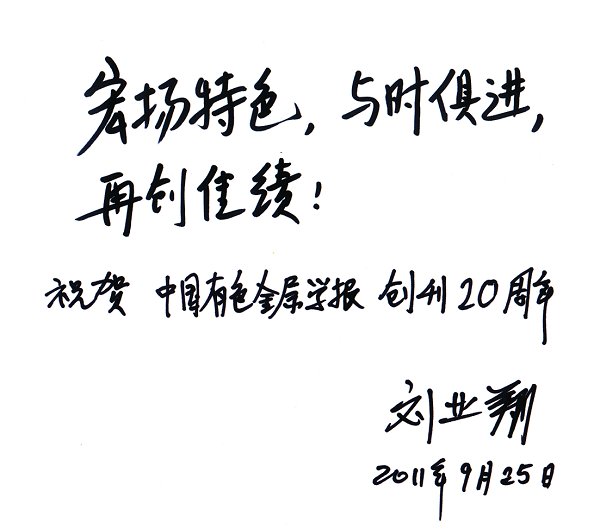 宏扬特色，与时俱进，
再创佳绩！
祝贺 中国有色金属学报 创刊20周年
刘业翔
2011年9月25日